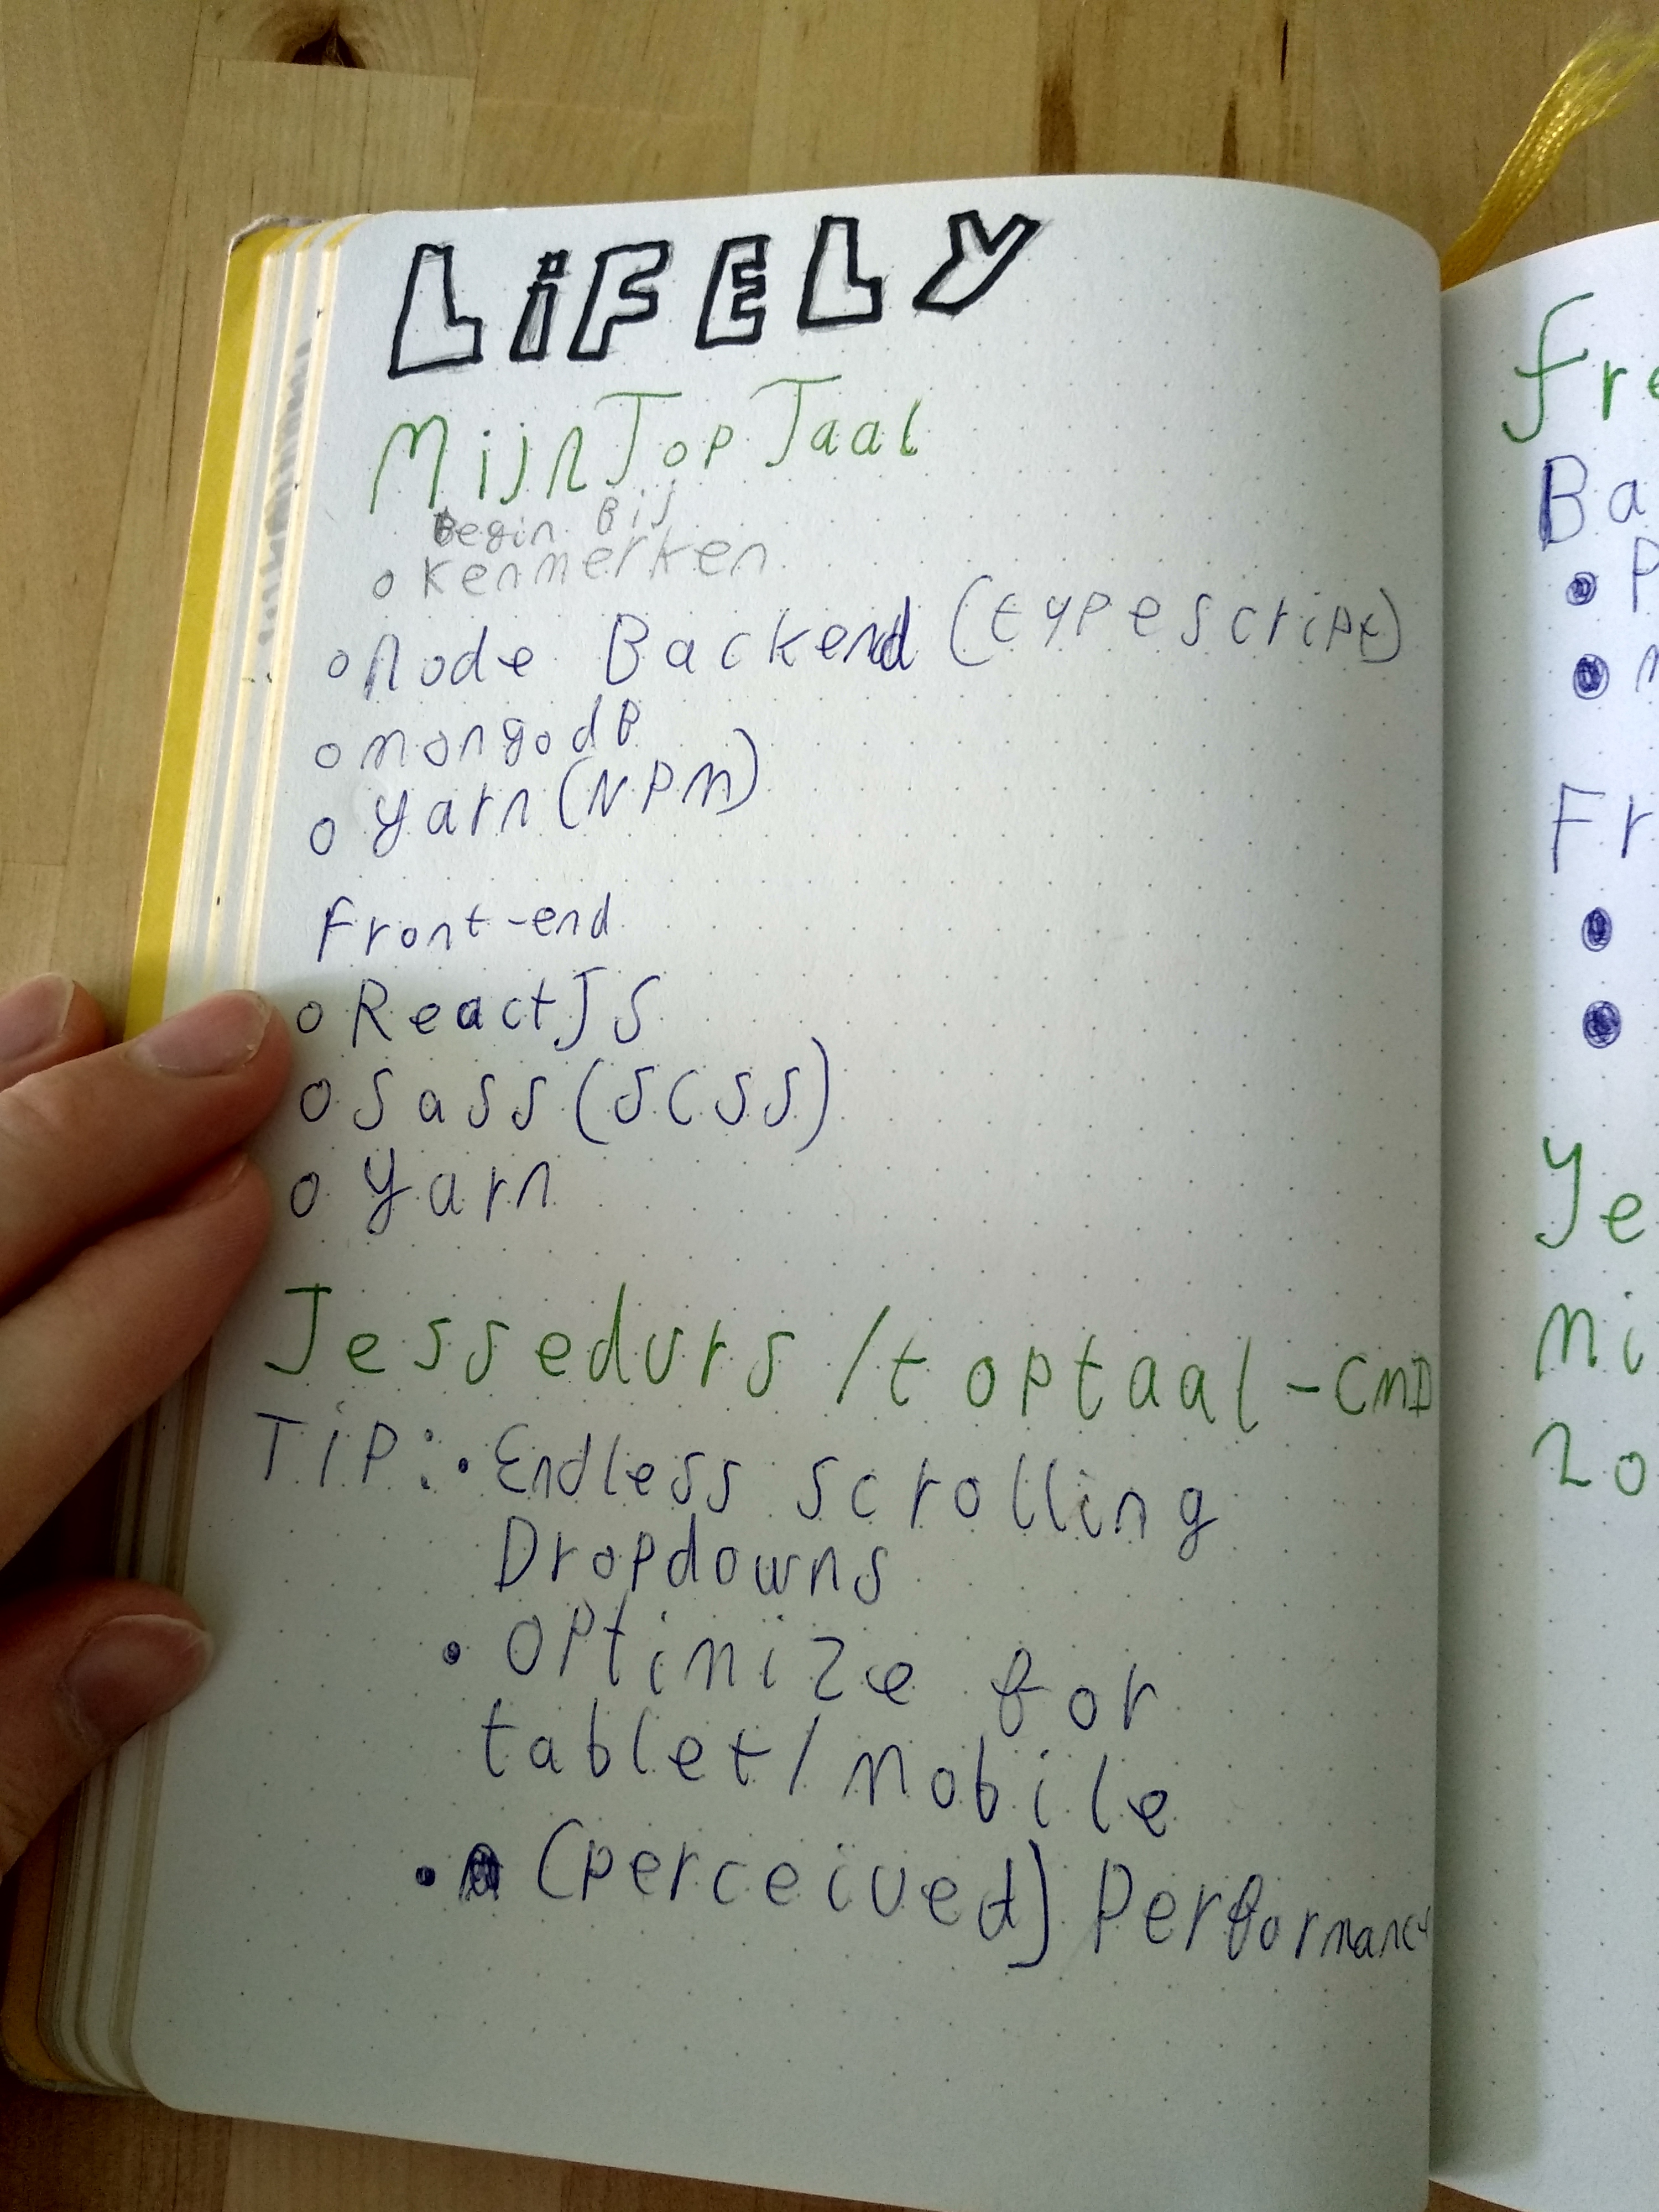 LiFELY
MijnTopTaal
Begin Bij
o Kenmerken
o Node Backend (typescript)
o mongodB
o yarn (NPM)
Front-end
o ReactJS
o Sass (SCSS)
o yarn
Jessedvrs / toptaal-CMD
TiP: • Endless scrolling
Dropdowns
• OPtimize for
tablet/mobile
• (perceived) Performance
fre
Ba
• P
• M
Fr
•
•
Je
Mi
20